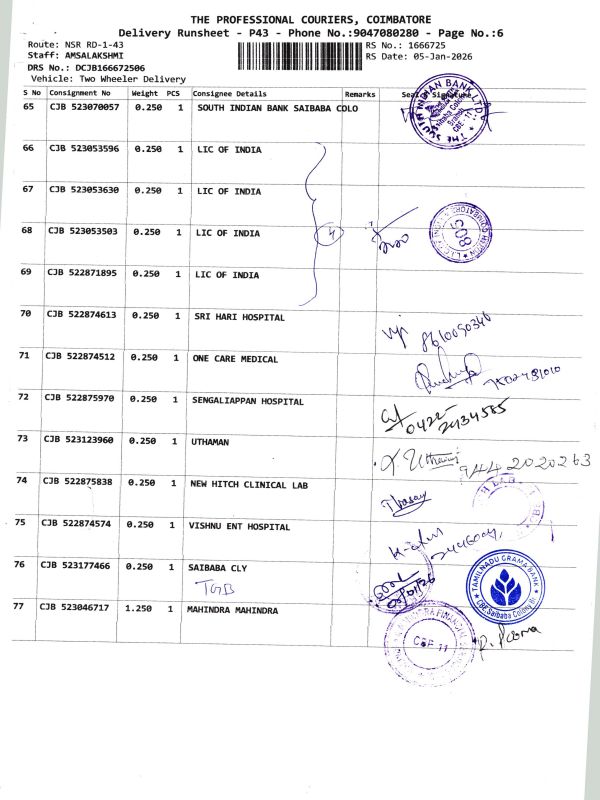 THE PROFESSIONAL COURIERS, COIMBATORE
Delivery Runsheet - P43 - Phone No.:9047080280 - Page No.:6
Route: NSR RD-1-43
RS No.: 1666725
Staff: AMSALAKSHMI
RS Date: 05-Jan-2026
DRS No.: DCJB166672506
Vehicle: Two Wheeler Delivery
S No Consignment No Weight PCS Consignee Details Remarks Seal Signature
65 CJB 523070057 0.250 1 SOUTH INDIAN BANK SAIBABA COLO
THE SOUTH INDIAN BANK LTD.
66 CJB 523053596 0.250 1 LIC OF INDIA
67 CJB 523053630 0.250 1 LIC OF INDIA
68 CJB 523053503 0.250 1 LIC OF INDIA
4
508
69 CJB 522871895 0.250 1 LIC OF INDIA
70 CJB 522874613 0.250 1 SRI HARI HOSPITAL
8610090346
71 CJB 522874512 0.250 1 ONE CARE MEDICAL
72 CJB 522875970 0.250 1 SENGALIAPPAN HOSPITAL
0422-
2434585
73 CJB 523123960 0.250 1 UTHAMAN
944 2020263
74 CJB 522875838 0.250 1 NEW HITCH CLINICAL LAB
75 CJB 522874574 0.250 1 VISHNU ENT HOSPITAL
76 CJB 523177466 0.250 1 SAIBABA CLY
TGB
TAMILNADU GRAMA BANK
CBE Saibaba Colony Br
77 CJB 523046717 1.250 1 MAHINDRA MAHINDRA
CBE 11